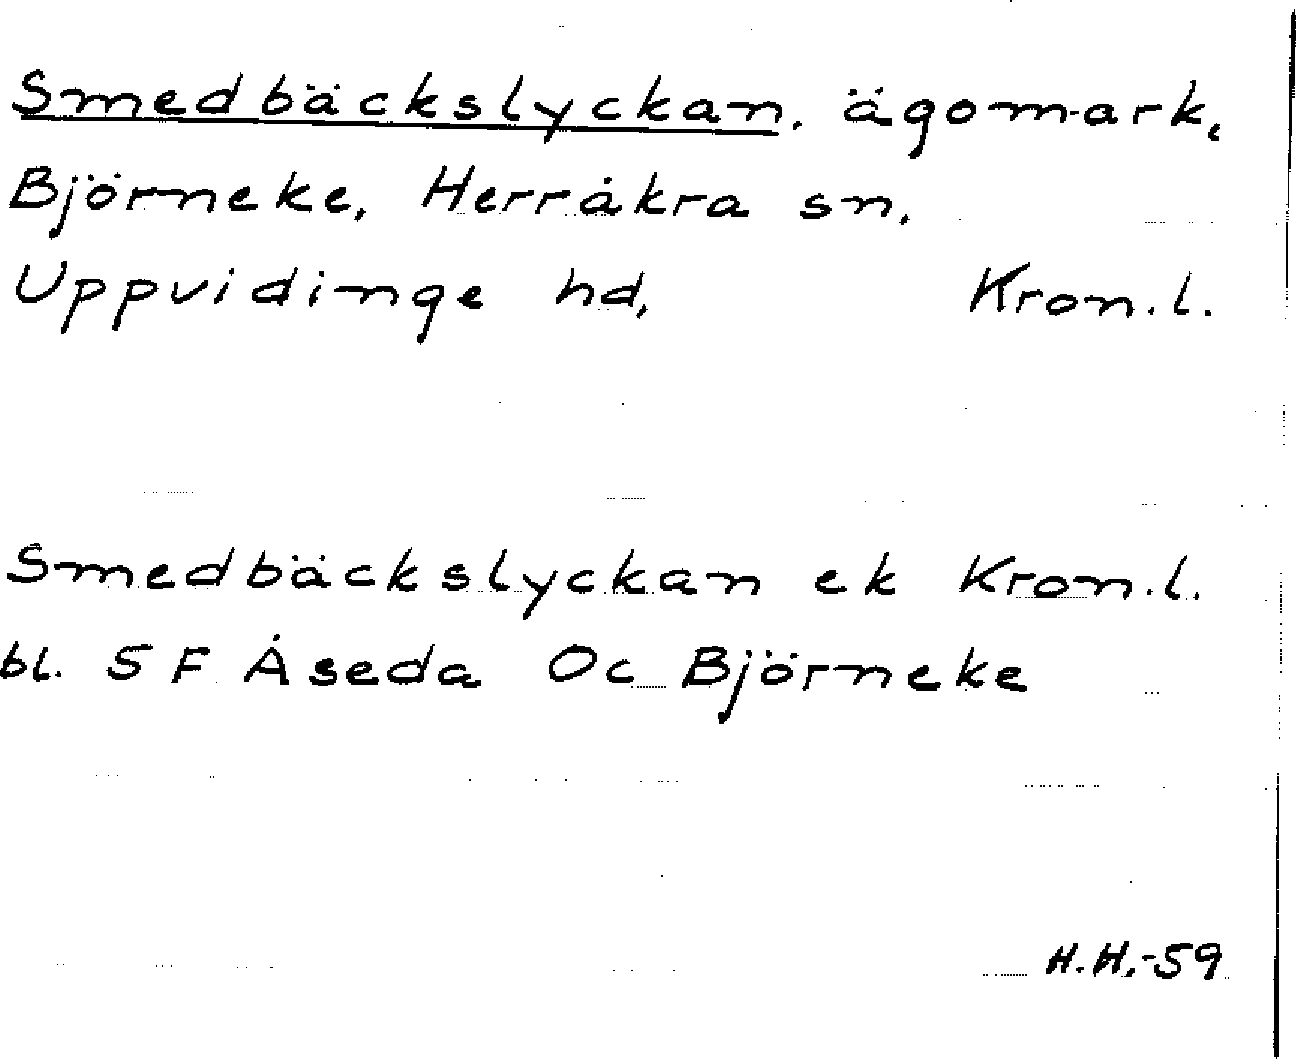 Smedbäckslyckan, ägomark,
Björneke, Herråkra sn,
Uppvidinge hd, Kron.l.
Smedbäckslyckan ek Kron.l.
bl. 5F Åseda Oc Björneke
H.H.-59